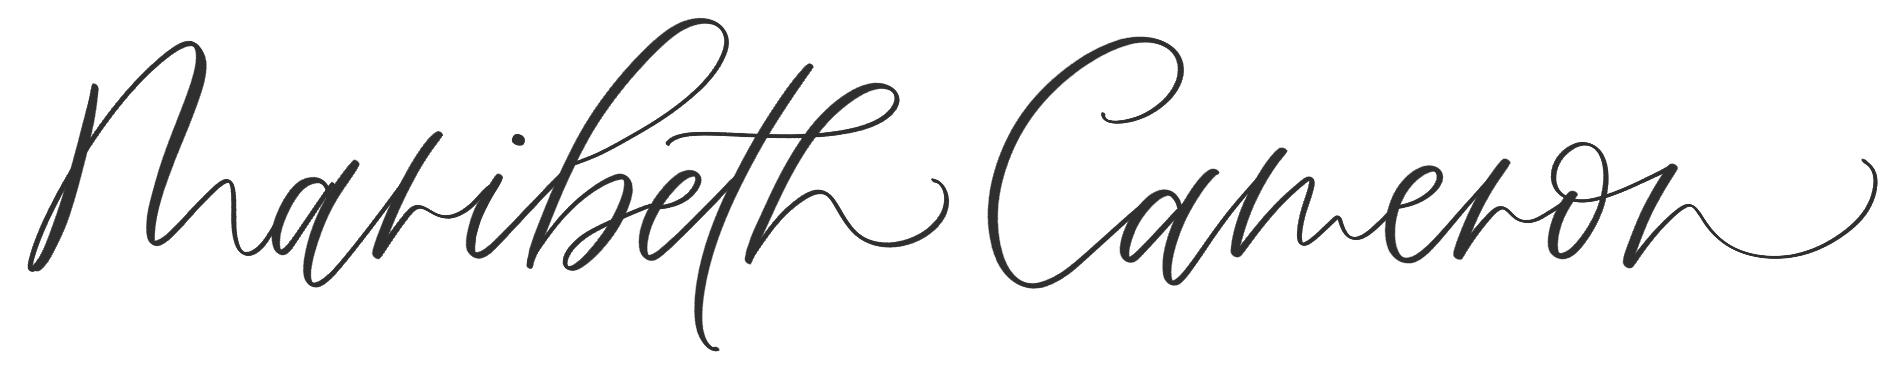 Maribeth Cameron